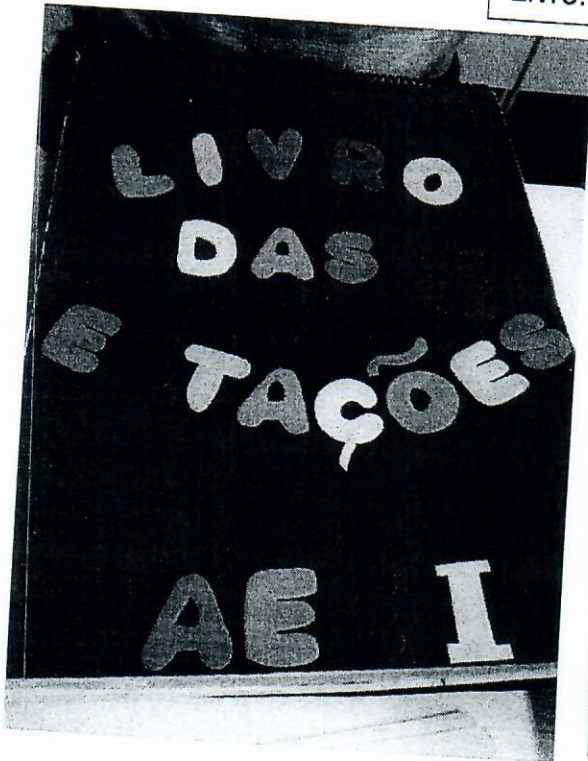 LIVRO
DAS
E TAÇÕES
AE I